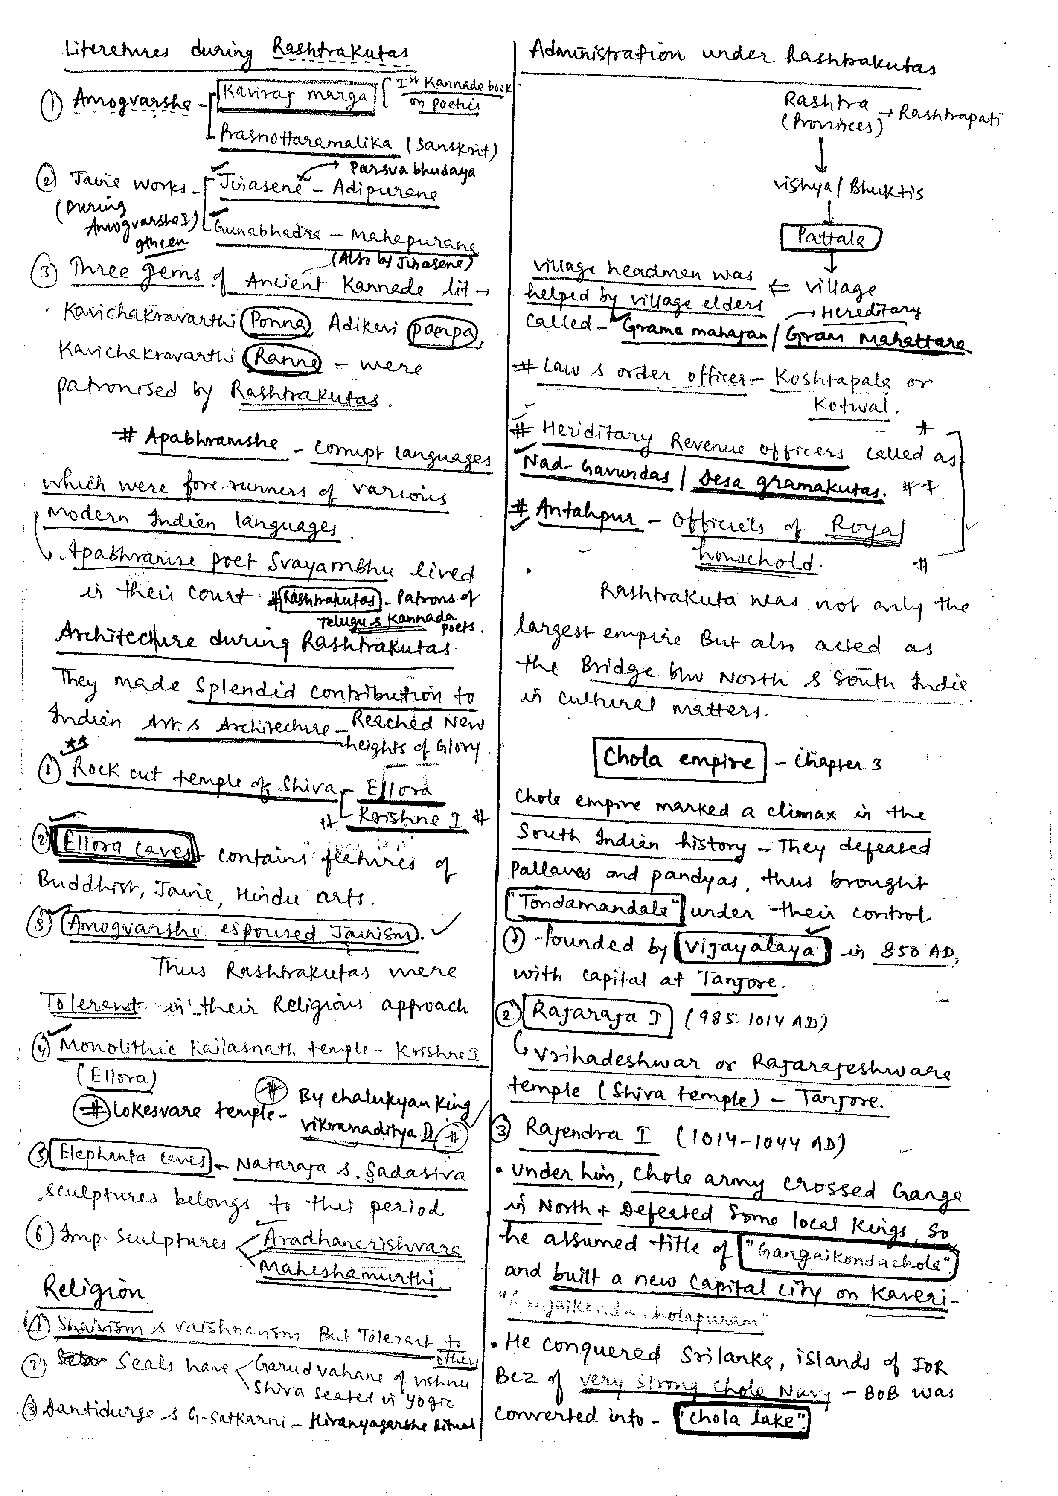 Literatures during Rashtrakutas
① Amogvarsha - Kaviraj marga [ Ist Kannada book on poetics
Prasnottaramalika (Sanskrit)
② Jaine works - Jinasene - Adipurana → Parsva bhudaya
(During Amogvarsha I)
Gunabhadra - Mahapurana
(Also by Jinasene)
③ Three gems of Ancient Kannada lit →
Kavichakravarthi Ponna, Adikavi Pampa,
Kavichakravarthi Ranna - were
patronised by Rashtrakutas.
# Apabhramsha - corrupt languages
which were fore-runners of various
Modern Indian languages
↳ Apabhramse poet Svayambhu lived
in their court # Rashtrakutas - Patrons of
Telugu & Kannada poets.
Architecture during Rashtrakutas
They made splendid contribution to
Indian Art & Architecture - Reached New
heights of Glory
**
① Rock cut temple of Shiva - Ellora
# Krishna I #
② Ellora caves - contains features of
Buddhist, Jaine, Hindu arts.
③ Amogvarsha espoused Jainism. ✓
Thus Rashtrakutas were
Tolerant in their Religious approach
④ Monolithic Kailasnath temple - Krishna I
(Ellora)
# Lokesvara temple - # By chalukyan King
Vikramaditya II #
⑤ Elephanta caves - Nataraja & Sadasiva
sculptures belongs to this period
⑥ Imp. sculptures < Aradhanarishvara
Maheshamurthi
Religion
① Shaivism & vaishnavism But Tolerant to
others
② Seals have < Garud vahana of vishnu
Shiva seated in yogic
③ Dantidurga & G-Satkarni - Hiranyagarsha Ritual
Administration under Rashtrakutas
Rashtra → Rashtrapati
(Provinces)
↓
vishya / Bhuktis
↓
Pattala
↓
village headmen was ⇐ village
helped by village elders → Hereditary
called - Grama mahajan / Gram Mahattara
# Law & order officer - Koshtapala or
Kotwal.
# Heriditary Revenue officers called as
Nad-Gavundas / Desa gramakutas. **
# Antahpur - officiels of Royal
household.
Rashtrakuta was not only the
largest empire But also acted as
the Bridge b/w North & South India
in cultural matters.
Chola empire - Chapter 3
Chola empire marked a climax in the
South Indian history - They defeated
Pallavas and pandyas, thus brought
"Tondamandala" under their control
① founded by Vijayalaya in 850 AD,
with capital at Tanjore.
② Rajaraja I (985-1014 AD)
↳ Vrihadeshwar or Rajarajeshwara
temple (Shiva temple) - Tanjore.
③ Rajendra I (1014-1044 AD)
• Under him, Chola army crossed Ganga
in North + Defeated some local kings, so
he assumed title of "Gangaikondachola"
and built a new capital city on Kaveri -
"Gangaikonda cholapuram"
• He conquered Srilanka, islands of IOR
Bcz of very strong Chola Navy - BoB was
converted into - "Chola lake"